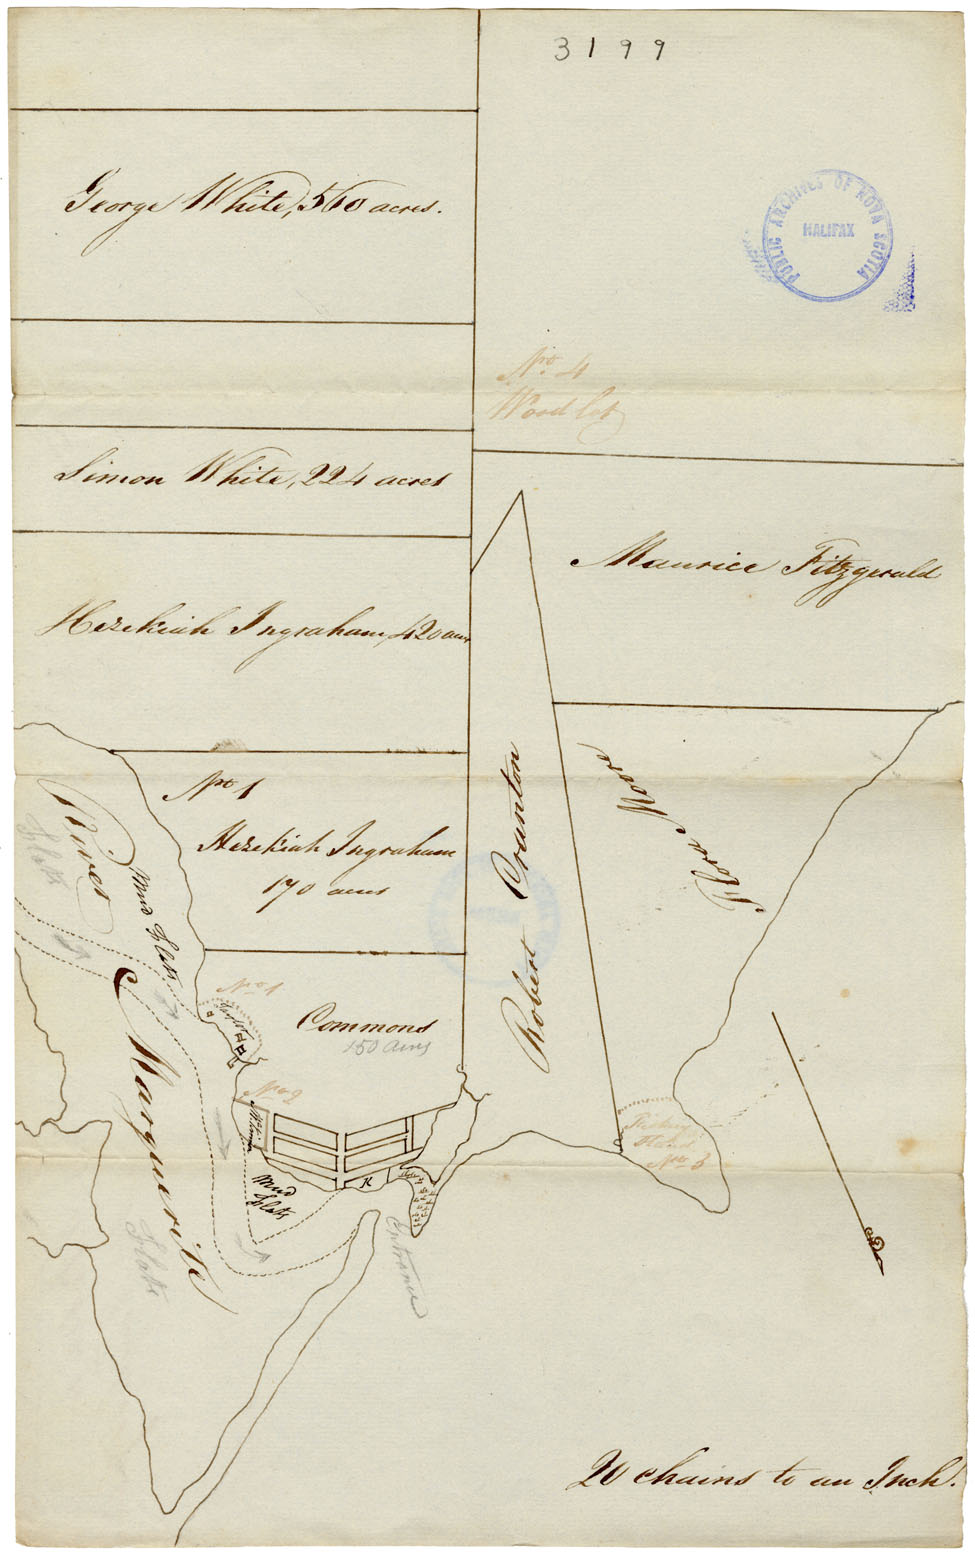 3199
George White, 560 acres.
PUBLIC ARCHIVES OF NOVA SCOTIA
HALIFAX
No. 4
Wood lot
Simon White, 224 acres
Maurice Fitzgerald
Hezekiah Ingraham, 420 acres
No 1
Hezekiah Ingraham
170 acres
Robert Cranton
Flore Moore
River Marguerite
Flats
Mud Flats
No 1
Commons
150 Acres
No 2
Mud
Flats
K
Entrance
Flats
Fishery
No 3
20 chains to an Inch.